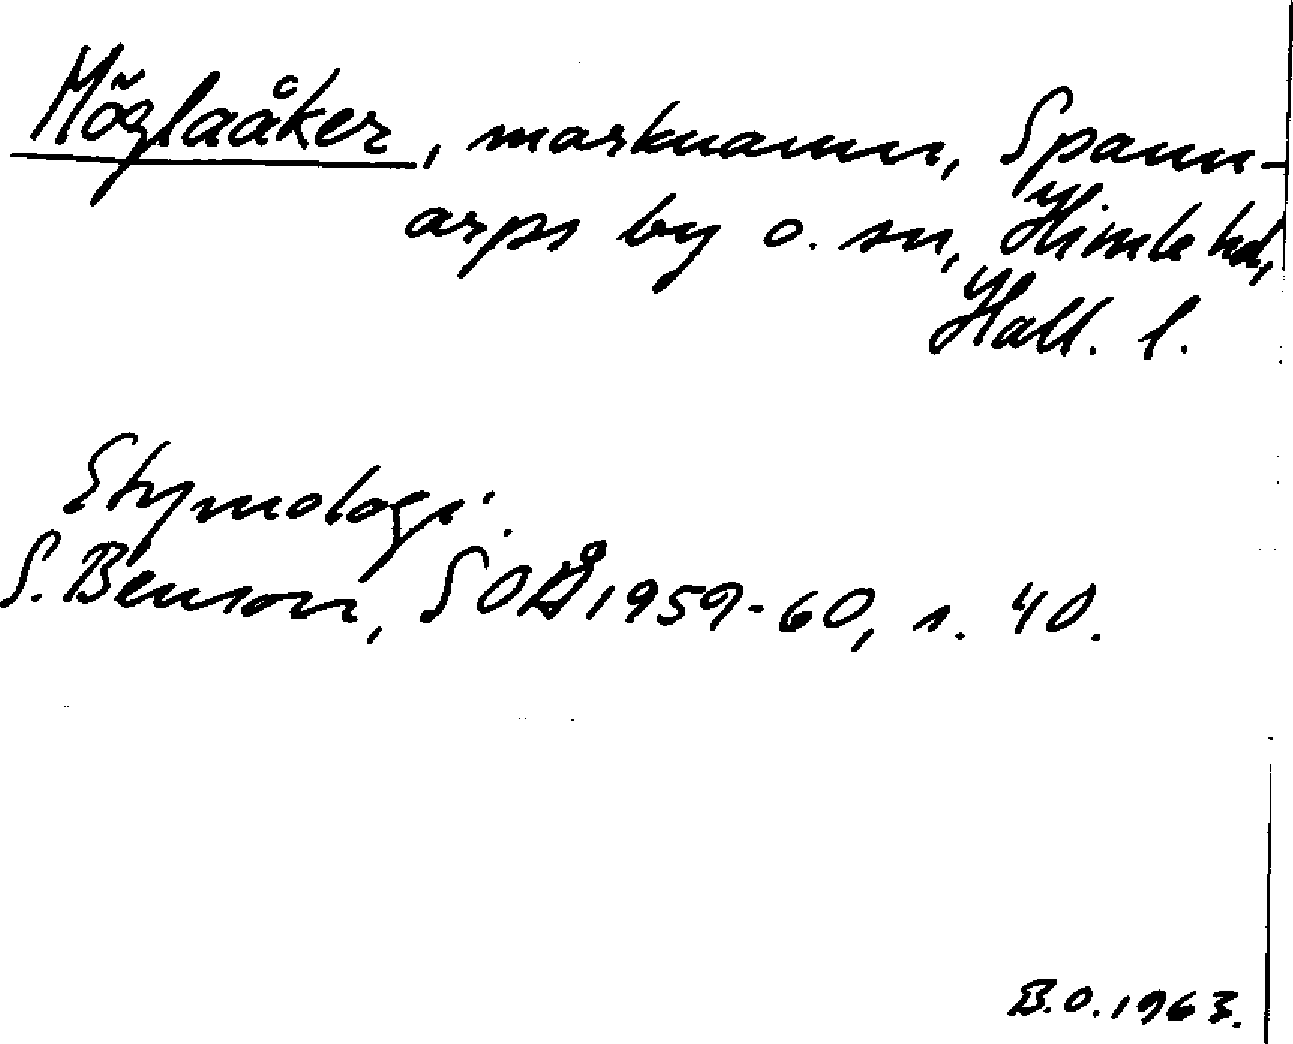 Möglaåker, marknamn, Spann-
arps by o. sn, Himle hd,
Hall. l.
Etymologi.
S. Benson, SOÅ 1959-60, s. 40.
B.O. 1963.